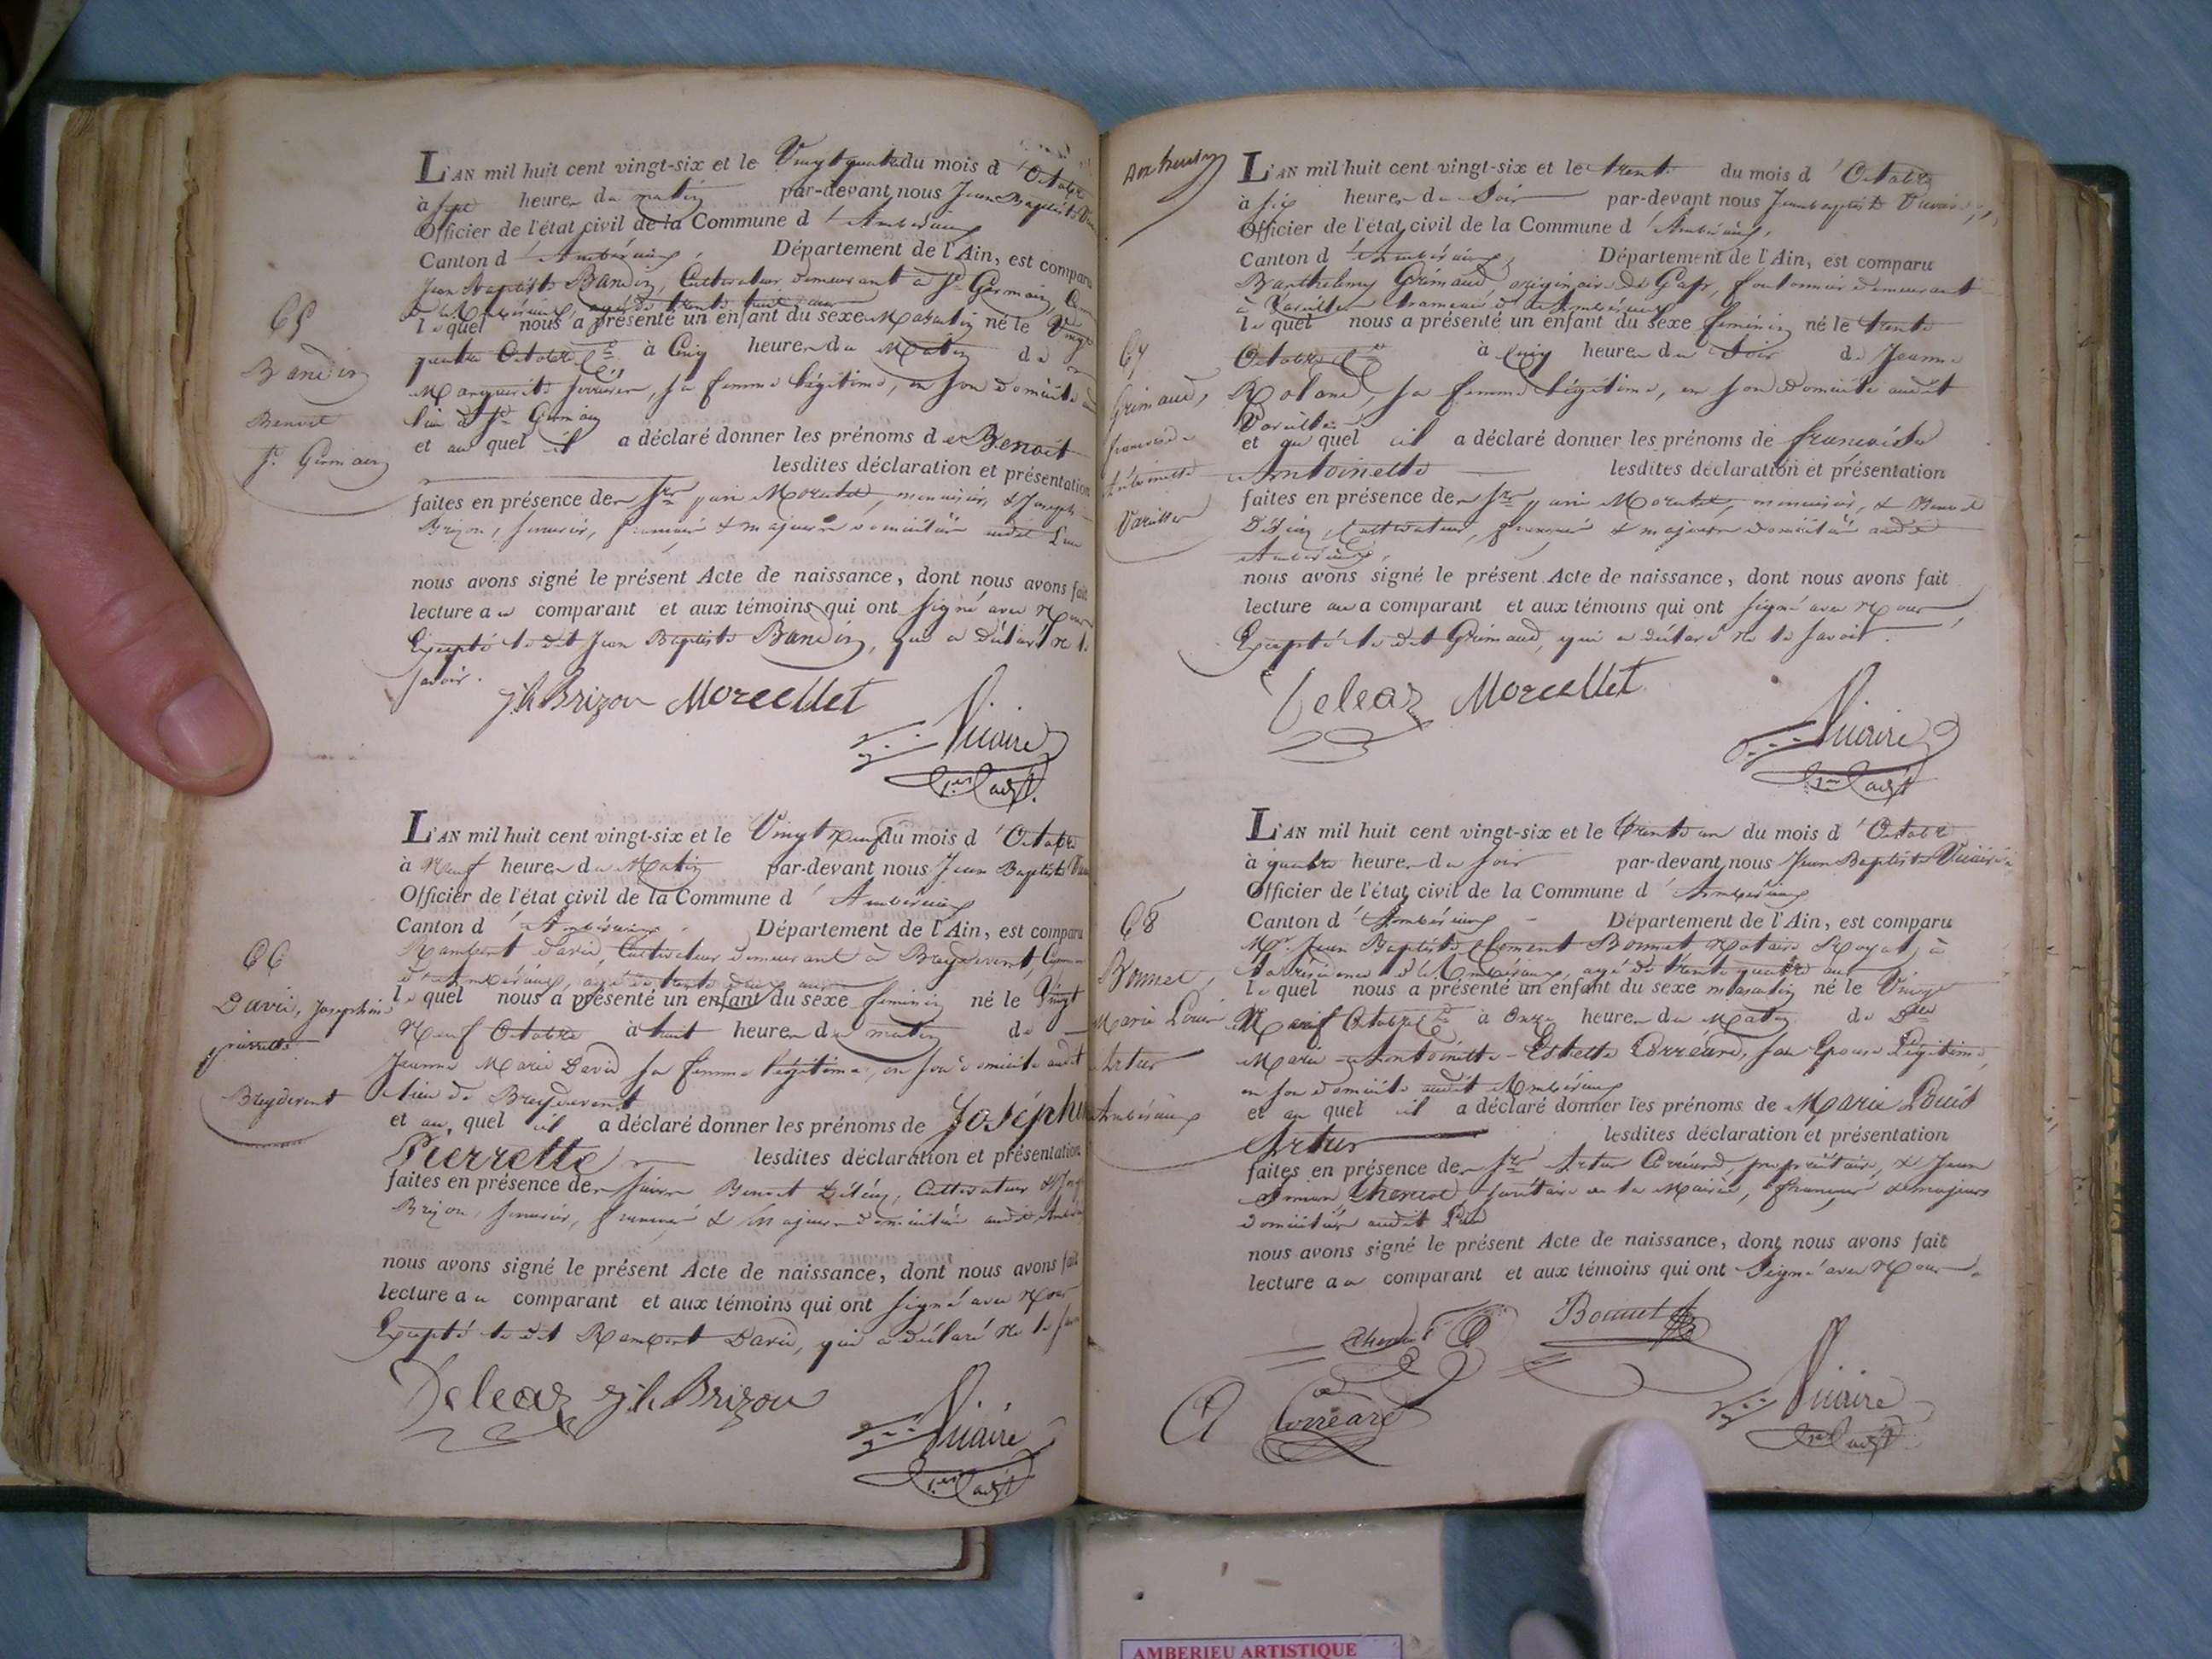 L'AN mil huit cent vingt-six et le Vingt quatre du mois d'Octobre
à sept heures du matin par-devant nous Jean Baptiste
Officier de l'état civil de la Commune d'Ambérieux
Canton d'Ambérieux, Département de l'Ain, est comparu
Jean Baptiste Bandin, Cultivateur demeurant à St Germain,
d'Ambérieux, agé de trente huit ans
lequel nous a présenté un enfant du sexe Masculin né le Vingt
quatre Octobre à Cinq heures du Matin de
Marguerite, sa femme légitime, en son domicile
lieu de St Germain
et auquel il a déclaré donner les prénoms de Benoit
lesdites déclaration et présentation
faites en présence des Srs Morcellet, menuisier, & Joseph
Brizon, français & majeurs domiciliés audit Lieu
nous avons signé le présent Acte de naissance, dont nous avons fait
lecture au comparant et aux témoins qui ont signé avec Nous
Excepté le dit Jean Baptiste Bandin, qui a déclaré ne le
savoir.
jh Brizon Morcellet
Vicaire
1er adjt.
65
Bandin
Benoit
St Germain
L'AN mil huit cent vingt-six et le Vingt neuf du mois d'Octobre
à Neuf heures du Matin par-devant nous Jean Baptiste
Officier de l'état civil de la Commune d'Ambérieux
Canton d'Ambérieux, Département de l'Ain, est comparu
Rambert David, Cultivateur demeurant à Breydevent,
d'Ambérieux, agé de trente deux ans
lequel nous a présenté un enfant du sexe feminin né le Vingt
Neuf Octobre à huit heures du matin de
Jeanne Marie David sa femme légitime, en son domicile audit
lieu de Breydevent
et auquel il a déclaré donner les prénoms de Joséphine
Pierrette lesdites déclaration et présentation
faites en présence des Benoit Deléaz, Cultivateur &
Brizon, français & Majeurs domiciliés audit
nous avons signé le présent Acte de naissance, dont nous avons fait
lecture au comparant et aux témoins qui ont signé avec Nous
Excepté le dit Rambert David, qui a déclaré ne le
Deleaz jh Brizon
Vicaire
1er adjt
66
David, Josephine
pierrette
Breydevent
L'AN mil huit cent vingt-six et le trente du mois d'Octobre
à six heures du Soir par-devant nous Jean baptiste Vicaire
Officier de l'état civil de la Commune d'Ambérieux,
Canton d'Ambérieux, Département de l'Ain, est comparu
Barthelemy Grimaud originaire de Gap, demeurant
à Vareilles hameau d'Ambérieux
lequel nous a présenté un enfant du sexe féminin né le trente
Octobre à Cinq heures du Soir de Jeanne
Roland, sa femme légitime, en son domicile audit
Vareilles
et auquel il a déclaré donner les prénoms de françoise
Antoinette lesdites déclaration et présentation
faites en présence des Srs Morcellet, menuisier, & Benoit
Deléaz, Cultivateur, français & majeurs domiciliés audit
Ambérieux,
nous avons signé le présent Acte de naissance, dont nous avons fait
lecture au comparant et aux témoins qui ont signé avec Nous,
Excepté le dit Grimaud, qui a déclaré ne le savoir.
Deleaz Morcellet
Vicaire
1er adjt
67
Grimaud,
francoise
Antoinette
Vareilles
L'AN mil huit cent vingt-six et le trente un du mois d'Octobre
à quatre heures du soir par-devant nous Jean Baptiste Vicaire
Officier de l'état civil de la Commune d'Ambérieux
Canton d'Ambérieux Département de l'Ain, est comparu
Mr. Jean Baptiste Clement Bonnet Notaire Royal, à
la résidence d'Ambérieux, agé de trente quatre ans
lequel nous a présenté un enfant du sexe masculin né le Vingt
Neuf Octobre à Onze heures du Matin de Dme
Marie Antoinette Estelle Corréard, son Epouse Légitime,
en son domicile audit Ambérieux
et auquel il a déclaré donner les prénoms de Marie Louis
Artur lesdites déclaration et présentation
faites en présence des Srs Artur Corréard, propriétaire, & Jean
secrétaire de la Mairie, français & majeurs
domiciliés audit Lieu
nous avons signé le présent Acte de naissance, dont nous avons fait
lecture au comparant et aux témoins qui ont Signé avec Nous
Bonnet
A Correard
Vicaire
1er adjt
68
Bonnet,
Marie Louis
Artur
Ambérieux
AMBERIEU ARTISTIQUE